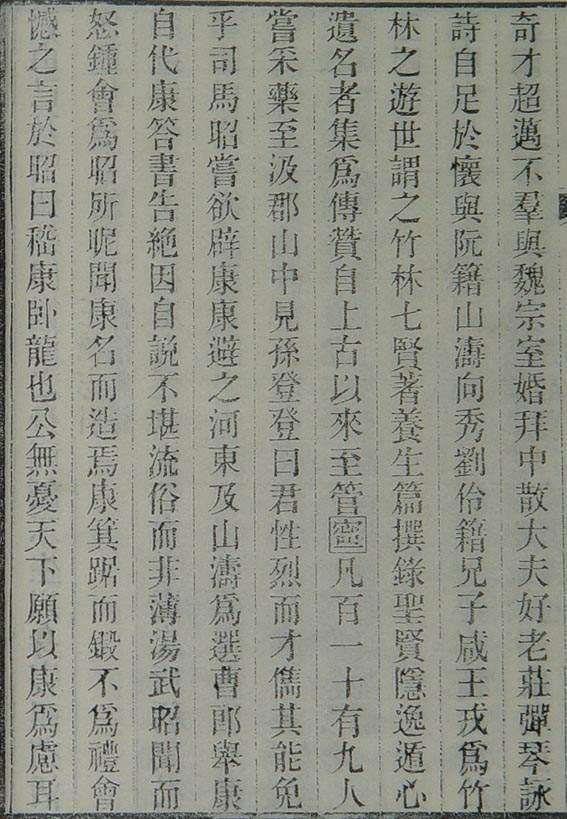 奇才超邁不羣與魏宗室婚拜中散大夫好老莊彈琴詠
詩自足於懷與阮籍山濤向秀劉伶籍兄子咸王戎爲竹
林之遊世謂之竹林七賢著養生篇撰錄聖賢隱逸遁心
遺名者集爲傳贊自上古以來至管寍凡百一十有九人
嘗采藥至汲郡山中見孫登登曰君性烈而才儁其能免
乎司馬昭嘗欲辟康康避之河東及山濤爲選曹郎舉康
自代康答書告絶因自説不堪流俗而非薄湯武昭聞而
怒鍾會爲昭所昵聞康名而造焉康箕踞而鍛不爲禮會
憾之言於昭曰嵇康卧龍也公無憂天下願以康爲慮耳